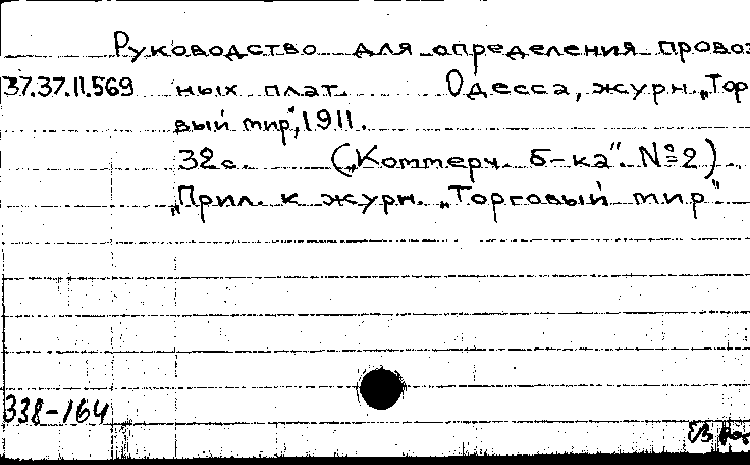 Руководство для определения провоз
37.37.11.569 ных плат. Одесса, журн. „Тор
вый мир", 1911.
32с. („Коммерч. б-ка". №2)
„Прил. к журн. „Торговый мир".
338-164